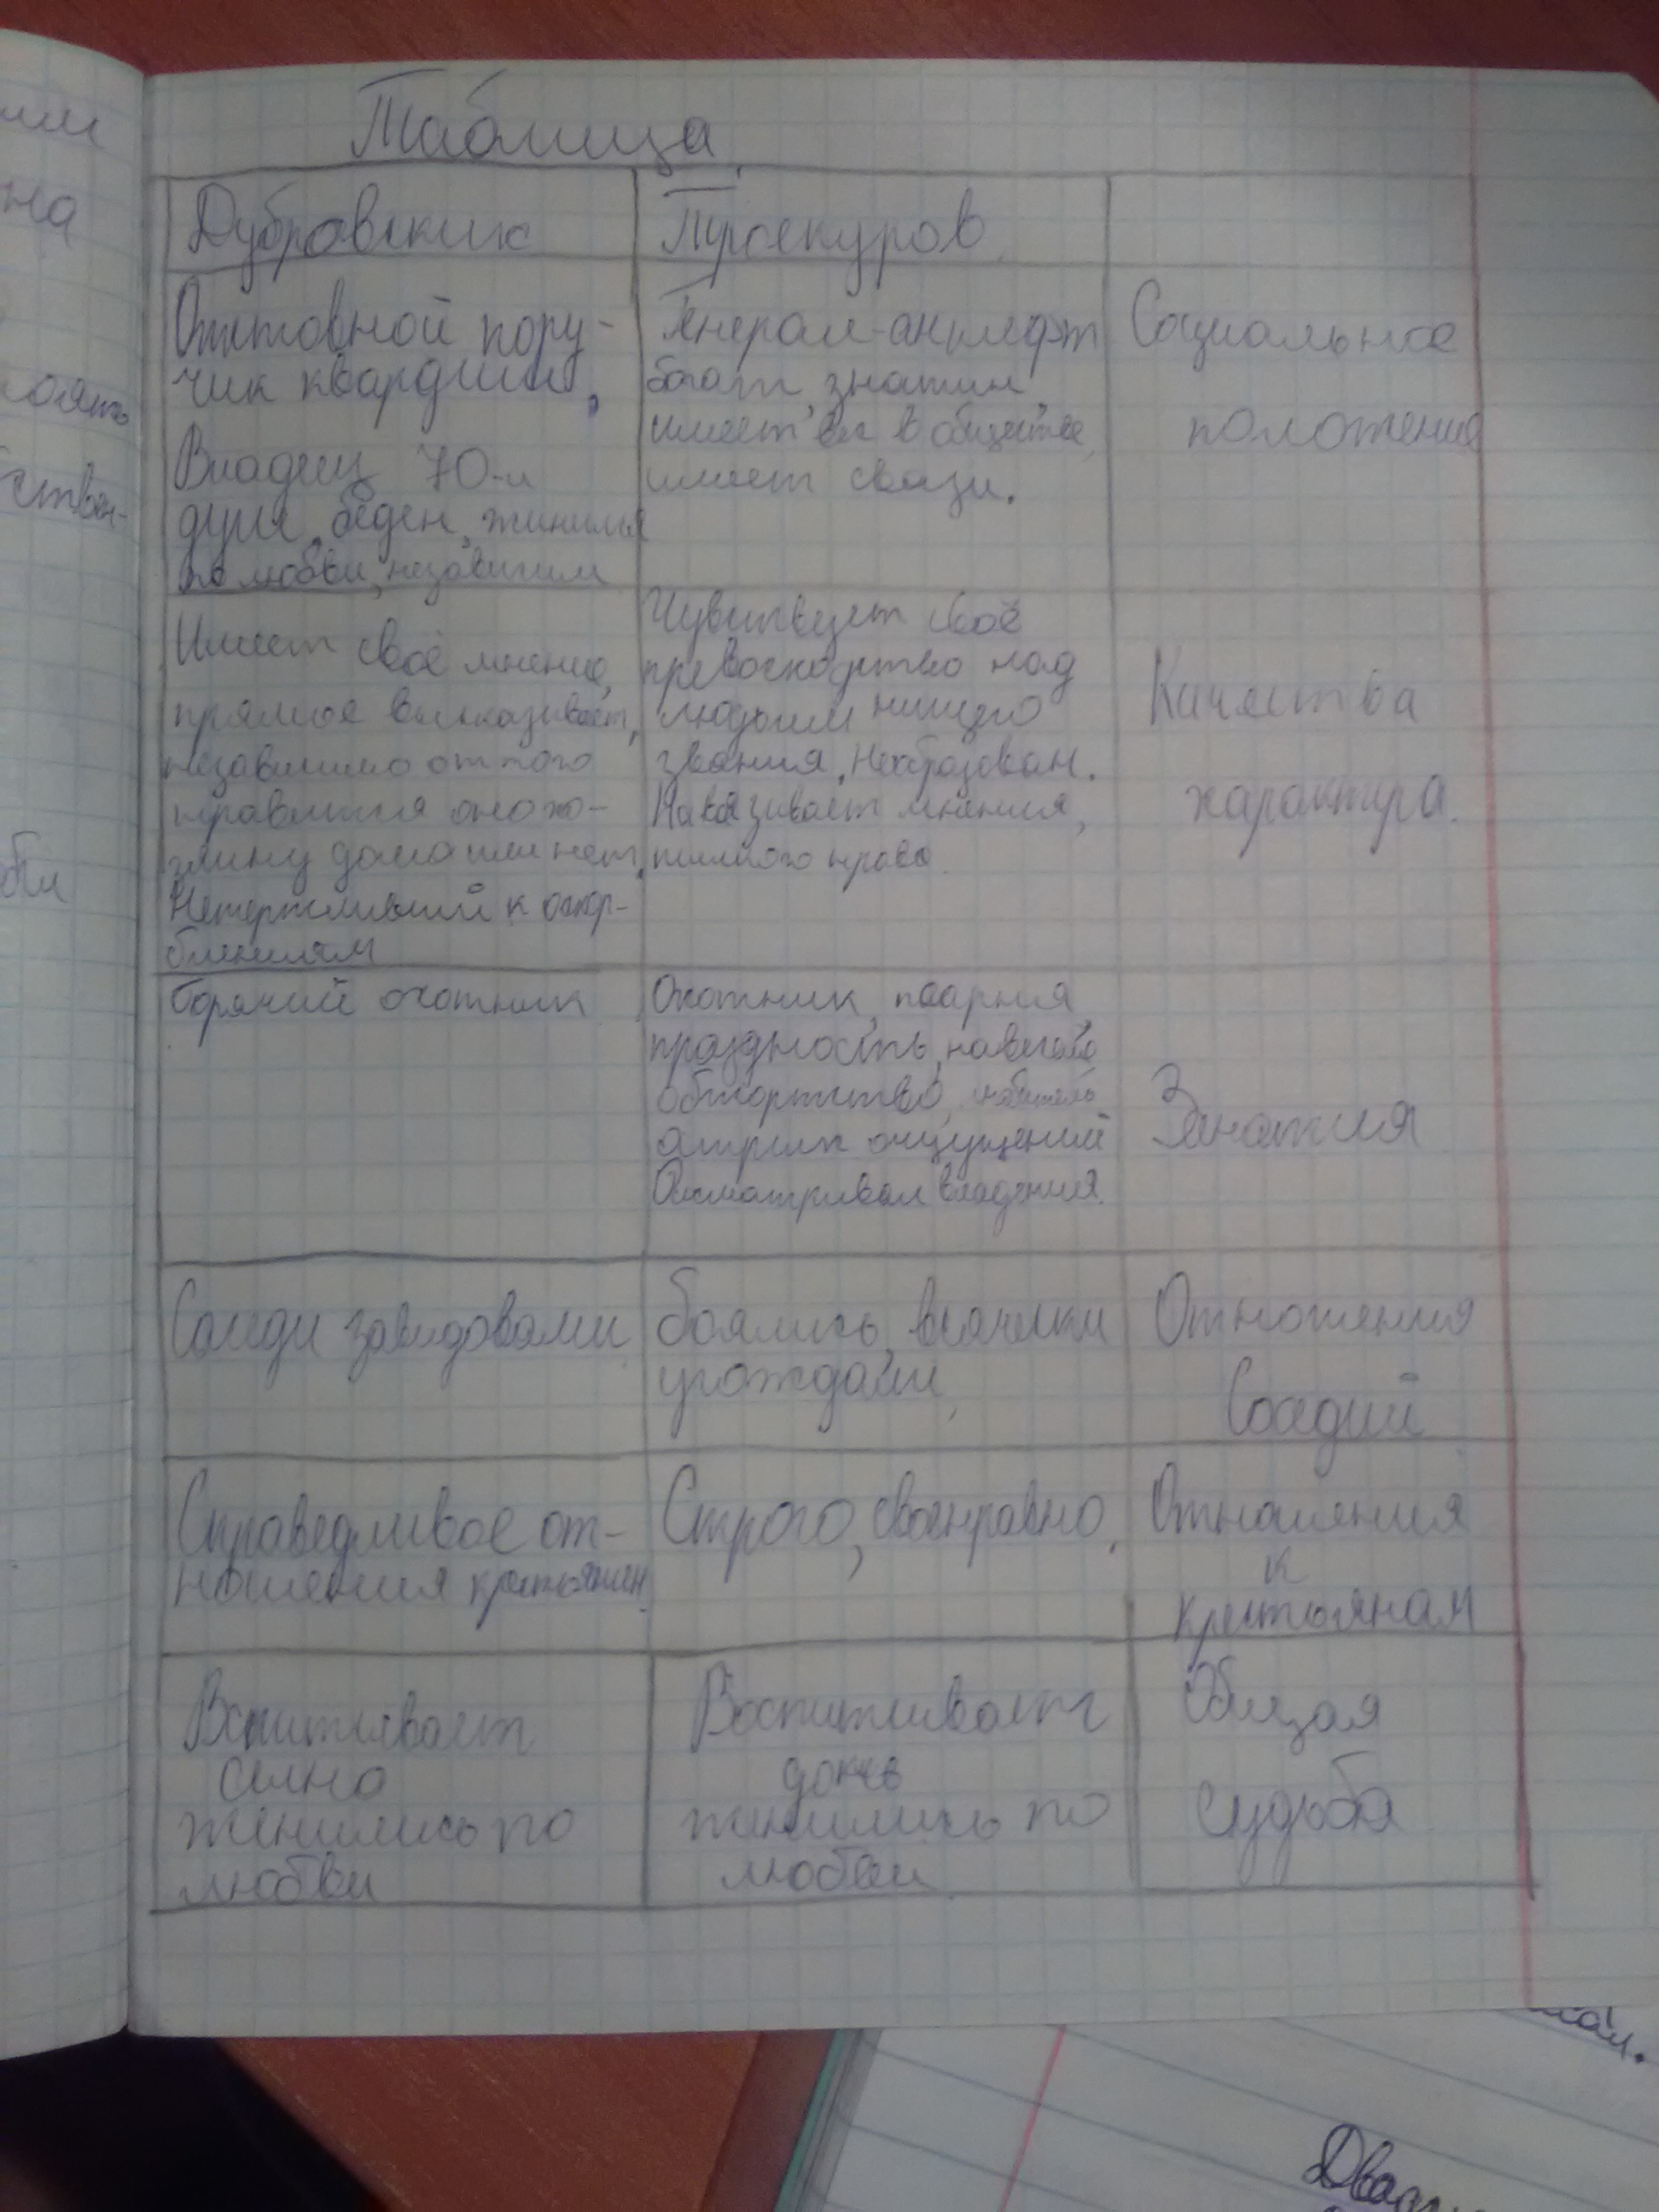 Таблица
Дубровский
Троекуров
Отставной пору-
чик гвардии,
Владец 70-и
душ, беден, женился
по любви, независим
Генерал-аншефт
богат, знатин,
имеет вес в обществе,
имеет связи.
Социальное
положение
Имеет своё мнение,
прямое высказывает,
независимо от того
нравится оно хо-
зяину дома или нет.
Нетерпливый к оскор-
блениям
Чувствует своё
превосходство над
людьми нищего
звания. Необразован.
Навязывает мнения,
пылкого нрава
Качества
характера.
Горячий охотник
Охотник, псарня,
праздность,
обжорство, любитель
острых ощущений
Осматривал владения.
Занятия
Соседи завидовали
боялись, всячески
угождали
Отношения
Соседий
Справедливое от-
ношения крестьянен
Строго, своенравно.
Отношения
к
крестьянам
Воспитывает
сына
женились по
любви
Воспитывает
дочь
женились по
любви
Общая
судьба
на
ствен-